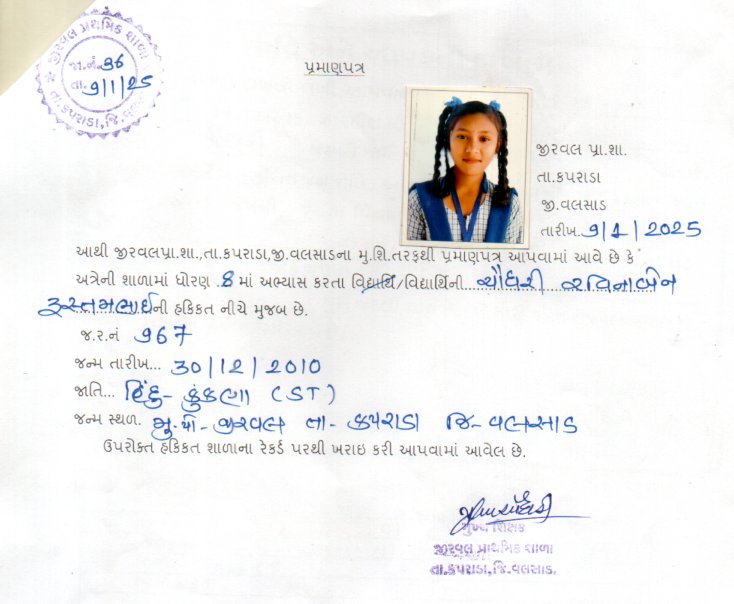 જીરવલ પ્રાથમિક શાળા
જા.નં. 36
તા. 9/1/25
તા.કપરાડા,જિ.વલસાડ
પ્રમાણપત્ર
જીરવલ પ્રા.શા.
તા.કપરાડા
જી.વલસાડ
તારીખ. 9/1/2025
આથી જીરવલપ્રા.શા.,તા.કપરાડા,જી.વલસાડના મુ.શિ.તરફથી પ્રમાણપત્ર આપવામાં આવે છે કે
અત્રેની શાળામાં ધોરણ .8 માં અભ્યાસ કરતા વિદ્યાર્થિ/વિદ્યાર્થિની....ચૌધરી રવિનાબેન
રૂસ્તમભાઈની હકિકત નીચે મુજબ છે.
જ.ર.નં 967
જન્મ તારીખ... 30/12/2010
જાતિ... હિંદુ- કુંકણા (ST)
જન્મ સ્થળ. મુ.પો- જીરવલ તા- કપરાડા જિ- વલસાડ
ઉપરોક્ત હકિકત શાળાના રેકર્ડ પરથી ખરાઇ કરી આપવામાં આવેલ છે.
મુખ્ય શિક્ષક
જીરવલ પ્રાથમિક શાળા
તા.કપરાડા,જિ.વલસાડ.